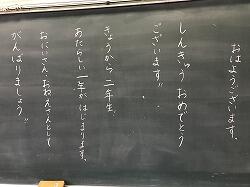 おはようございます。
しんきゅう おめでとう
ございます!!
きょうから 二年生。
あたらしい 一年が はじまります。
おにいさん、おねえさんとして
がんばりましょう!!